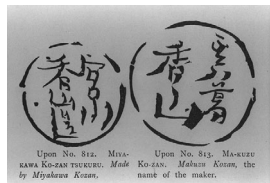 宮川
香山造
真葛
香山
Upon No. 812. MIYA-
KAWA KO-ZAN TSUKURU. Made
by Miyakawa Kozan.
Upon No. 813. MA-KUZU
KO-ZAN. Makuzu Kozan, the
name of the maker.